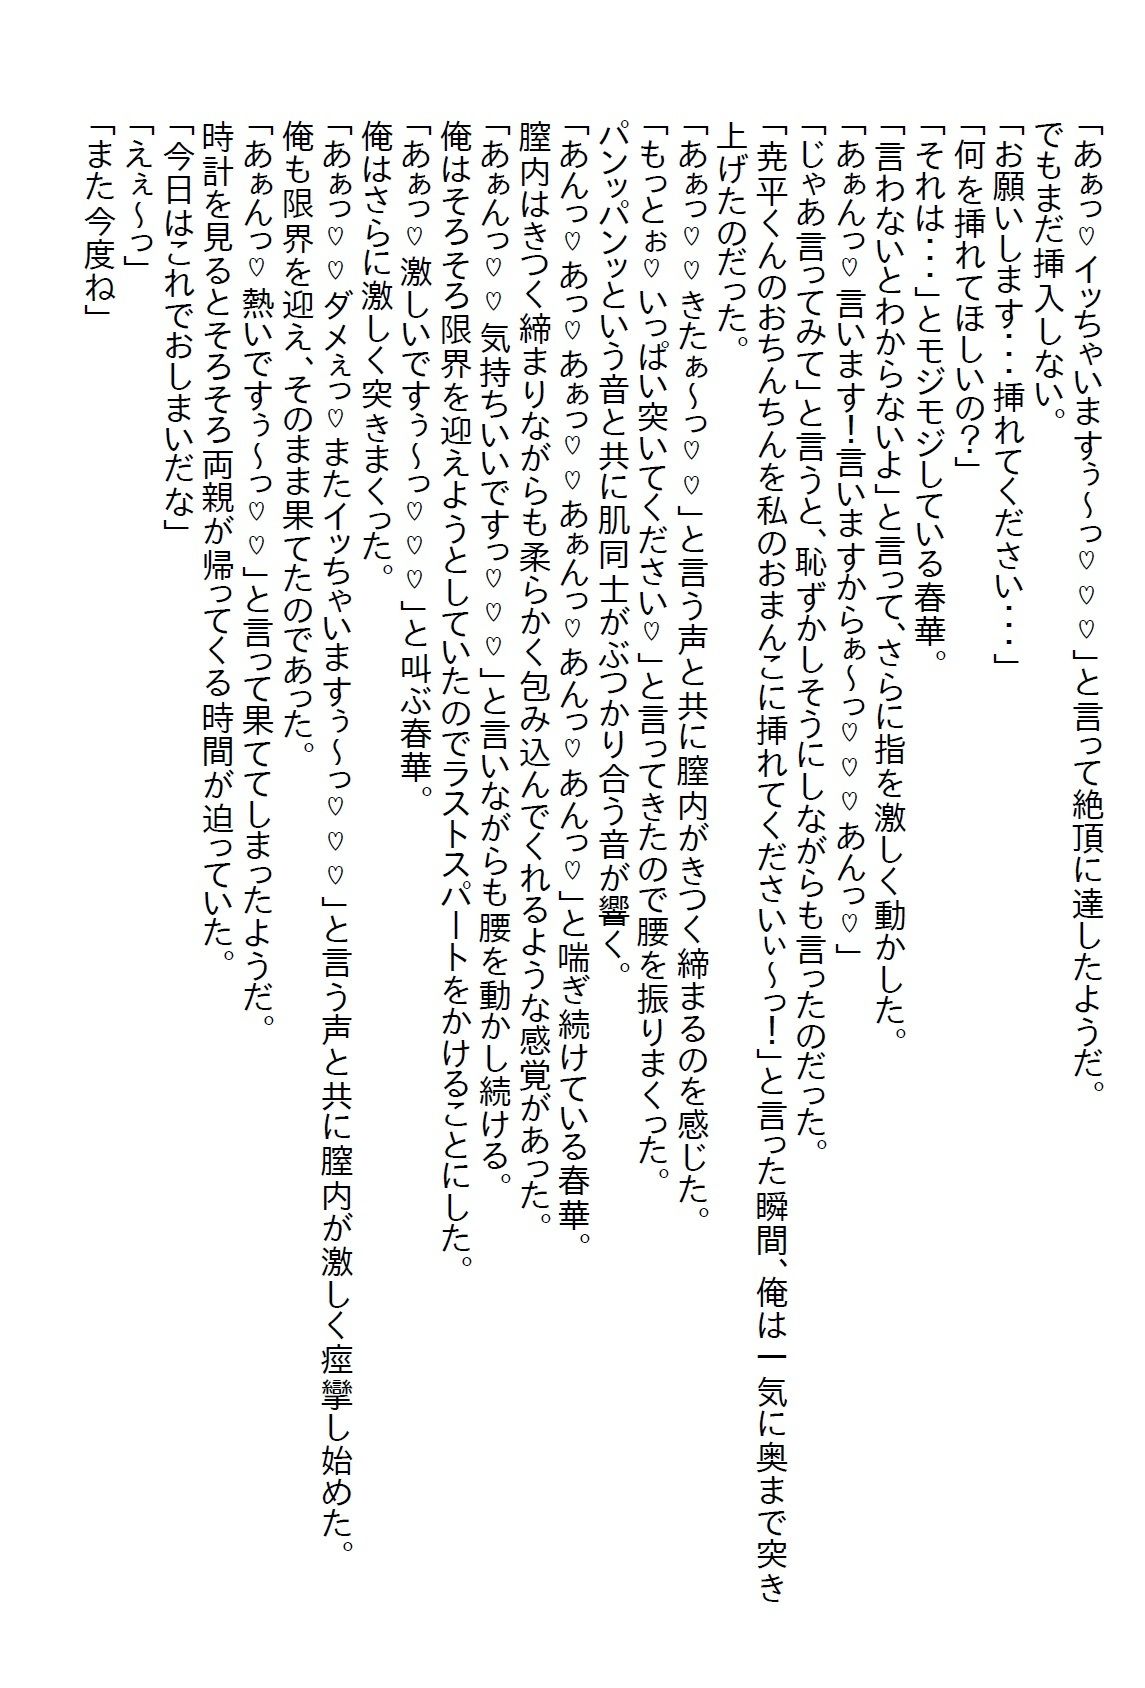 「あぁっ♡イッちゃいますぅ～っ♡♡♡」と言って絶頂に達したようだ。
でもまだ挿入しない。
「お願いします・・・挿れてください・・・」
「何を挿れてほしいの？」
「それは・・・」とモジモジしている春華。
「言わないとわからないよ」と言って、さらに指を激しく動かした。
「あぁんっ♡言います！言いますからぁ～っ♡♡♡あんっ♡」
「じゃあ言ってみて」と言うと、恥ずかしそうにしながらも言ったのだった。
「尭平くんのおちんちんを私のおまんこに挿れてくださいぃ～っ！」と言った瞬間、俺は一気に奥まで突き
上げたのだった。
「あぁっ♡♡きたぁ～っ♡♡」と言う声と共に膣内がきつく締まるのを感じた。
「もっとぉ♡いっぱい突いてください♡」と言ってきたので腰を振りまくった。
パンッパンッという音と共に肌同士がぶつかり合う音が響く。
「あんっ♡あっ♡あぁっ♡♡あぁんっ♡あんっ♡あんっ♡」と喘ぎ続けている春華。
膣内はきつく締まりながらも柔らかく包み込んでくれるような感覚があった。
「あぁんっ♡♡気持ちいいですっ♡♡♡」と言いながらも腰を動かし続ける。
俺はそろそろ限界を迎えようとしていたのでラストスパートをかけることにした。
「あぁっ♡激しいですぅ～っ♡♡♡」と叫ぶ春華。
俺はさらに激しく突きまくった。
「あぁっ♡♡ダメぇっ♡またイッちゃいますぅ～っ♡♡♡」と言う声と共に膣内が激しく痙攣し始めた。
俺も限界を迎え、そのまま果てたのであった。
「あぁんっ♡熱いですぅ～っ♡♡」と言って果ててしまったようだ。
時計を見るとそろそろ両親が帰ってくる時間が迫っていた。
「今日はこれでおしまいだな」
「えぇ～っ」
「また今度ね」